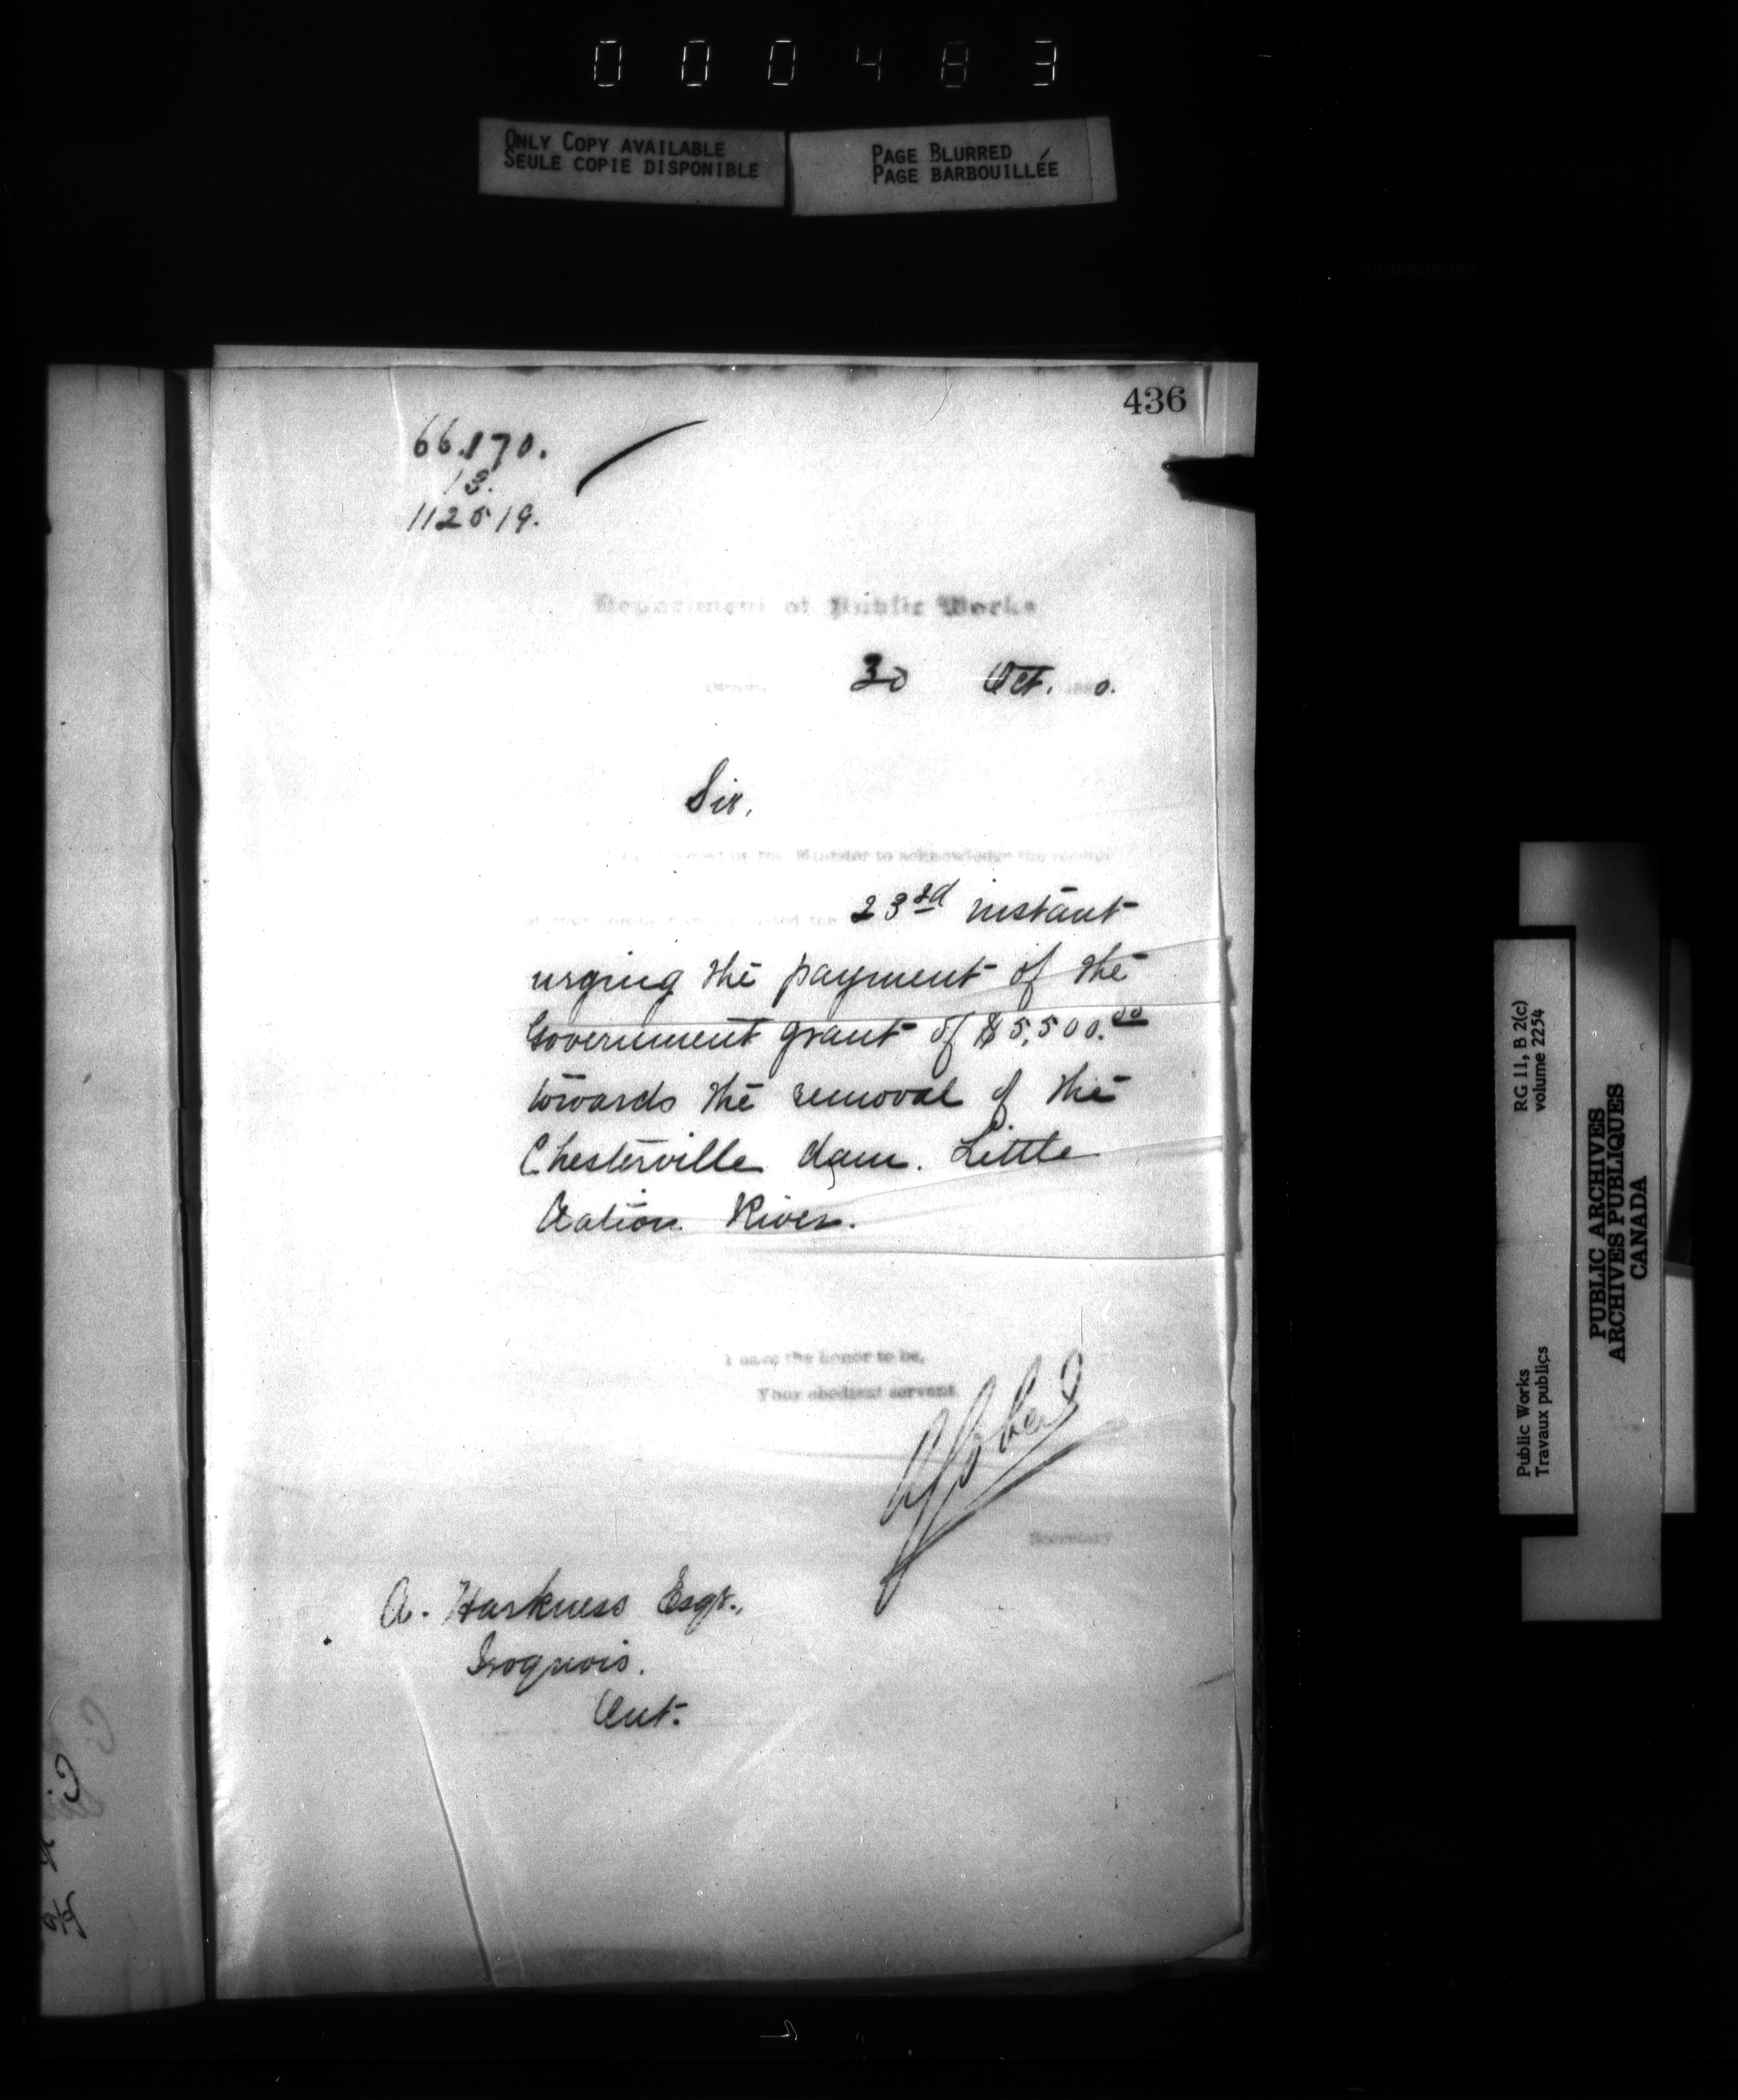 000483
ONLY COPY AVAILABLE
SEULE COPIE DISPONIBLE
PAGE BLURRED
PAGE BARBOUILLÉE
436
66.170.
13.
112519.
Department of Public Works
30 Oct. 0.
Sir,
by the Minister to acknowledge the receipt
of your 23rd instant
urging the payment of the
Government grant of $5,500.00
towards the removal of the
Chesterville dam. Little
Nation River.
I have the honor to be,
Your obedient servant
Secretary
A. Harkness Esqr.,
Iroquois.
Ont.
RG 11, B 2(c)
volume 2254
Public Works
Travaux publics
PUBLIC ARCHIVES
ARCHIVES PUBLIQUES
CANADA